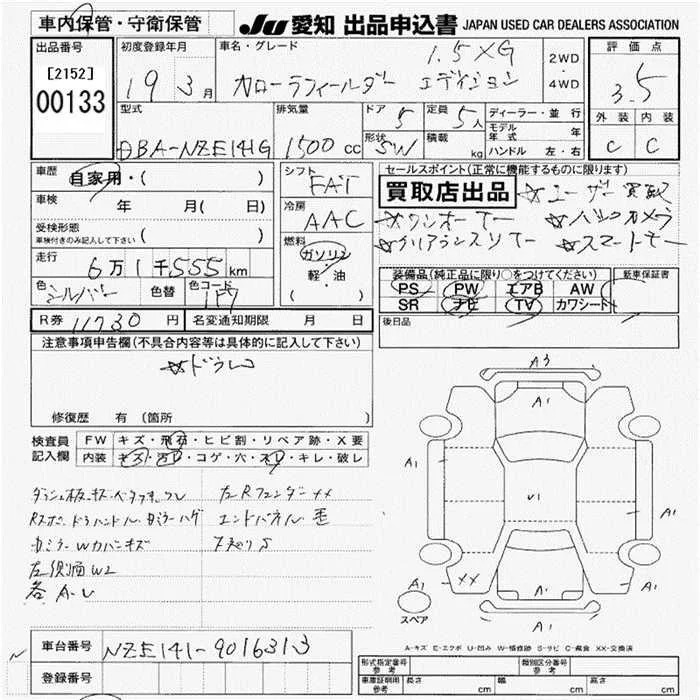 車内保管・守衛保管
JU 愛知 出品申込書 JAPAN USED CAR DEALERS ASSOCIATION
出品番号
[2152]
00133
初度登録年月
19 3月
車名・グレード
1.5XG
カローラフィールダー エディション
2WD
・
4WD
評価点
3.5
外装 内装
C C
型式
DBA-NZE141G
排気量
1500cc
ドア
5
定員
5人
形状
SW
積載
kg
ディーラー・並行
モデル年式 年
ハンドル 左・右
車歴
自家用・( )
車検
年 月( 日)
受検形態
車検付きのみ記入して下さい ( )
走行
6万1千555km
色
シルバー
色替
色コード
1F7
シフト
FAT
冷房
AAC
燃料
ガソリン
軽・油
( )
セールスポイント(正常に機能するものに限ります)
買取店出品 ☆ユーザー買取
☆ワンオーナー ☆バックカメラ
☆クリアランスソナー ☆スマートキー
装備品(純正品に限り○をつけてください)
PS PW エアB AW
SR ナビ TV カワシート
新車保証書
後日品
R券 11730円
名変通知期限 月 日
注意事項申告欄(不具合内容等は具体的に記入して下さい)
☆ドラレコ
修復歴 有 (箇所 )
検査員
記入欄
FW キズ・飛石・ヒビ割・リペア跡・X要
内装 キズ・汚レ・コゲ・穴・スレ・キレ・破レ
左RフェンダーXX
エンドパネル歪
左側面W2
各A・U
A3
A1
A1
U1
A1
A1
A1
XX
A1
A1
A1
スペア
A-キズ E-エクボ U-凹み W-補修跡 S-サビ C-腐食 XX-交換済
車台番号
NZE141-9016313
登録番号
形式指定番号
参考
類別区分番号
参考
車庫証明用
参考
長さ cm
幅 cm
高さ cm